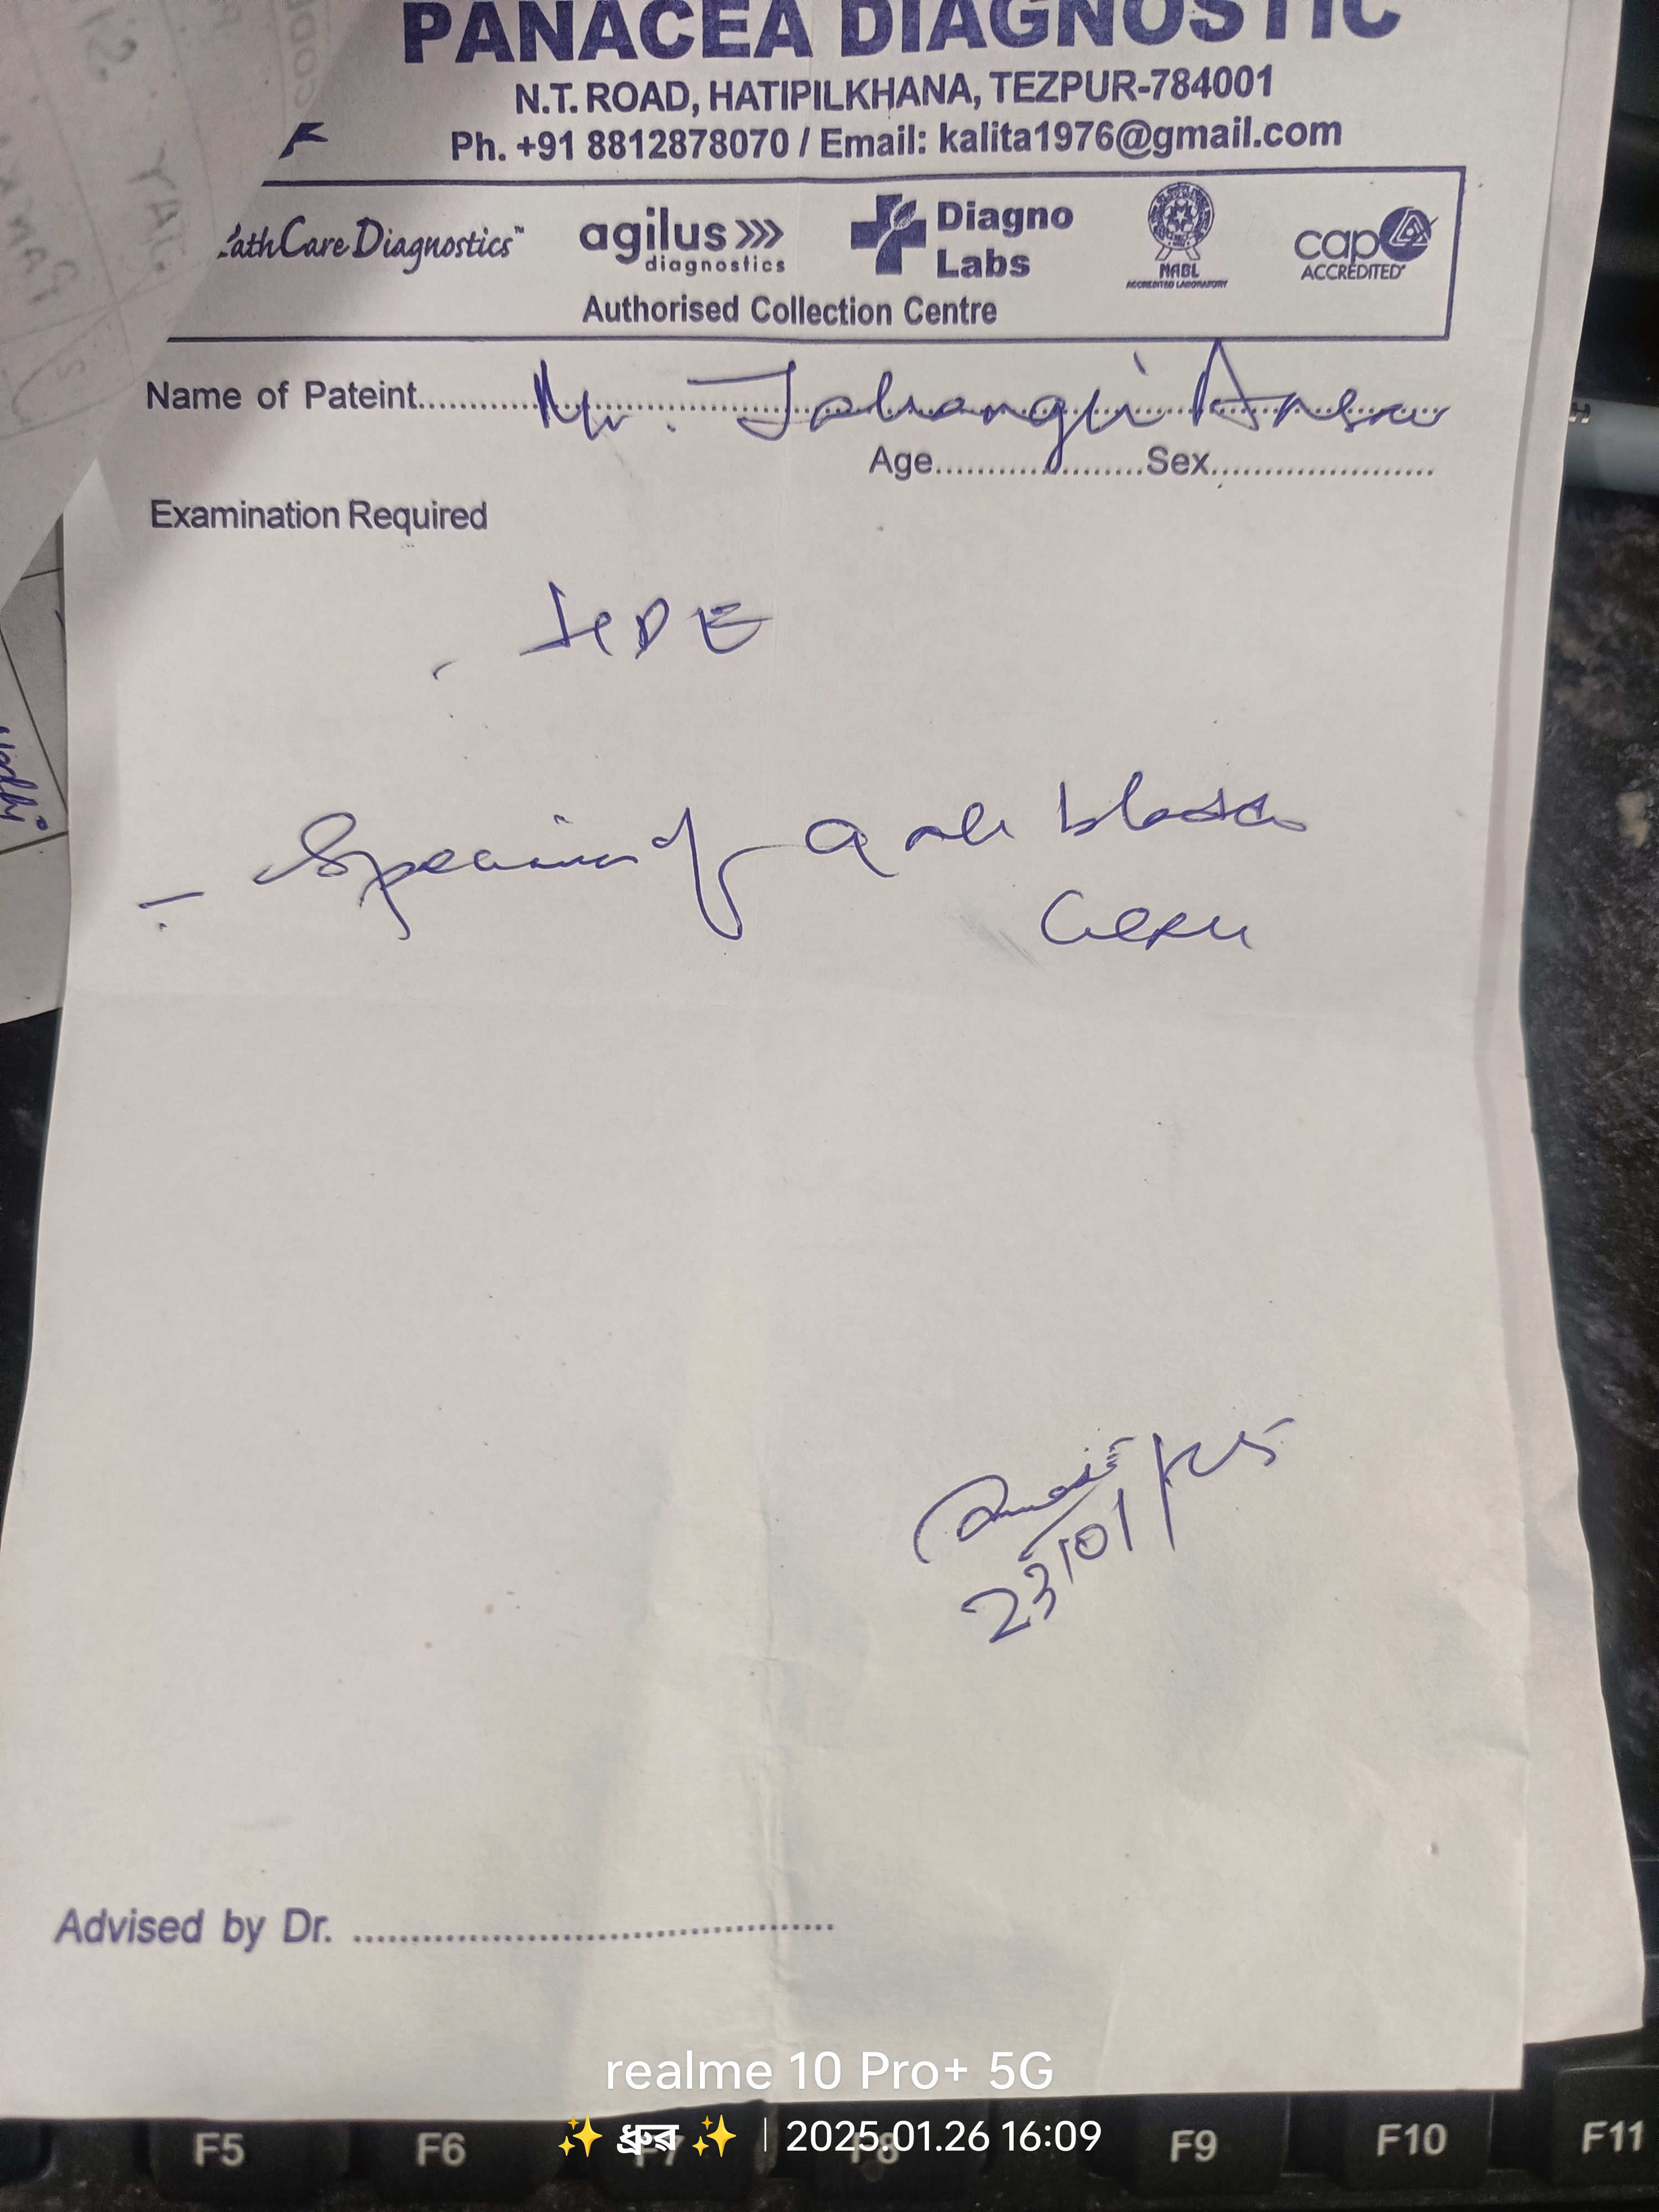 PANACEA DIAGNOSTIC
N.T. ROAD, HATIPILKHANA, TEZPUR-784001
Ph. +91 8812878070 / Email: kalita1976@gmail.com
athCare Diagnostics™
agilus
diagnostics
Diagno
Labs
NABL
ACCREDITED LABORATORY
cap
ACCREDITED
Authorised Collection Centre
Name of Pateint.......... Mr. Jahangir Ansari
Age....................Sex.....................
Examination Required
HPE
- Specimen of Gall bladder
23/01/25
Advised by Dr. ..........................................
realme 10 Pro+ 5G
✨ ধ্ৰুৱ ✨ | 2025.01.26 16:09
F5 F6 F7 F8 F9 F10 F11